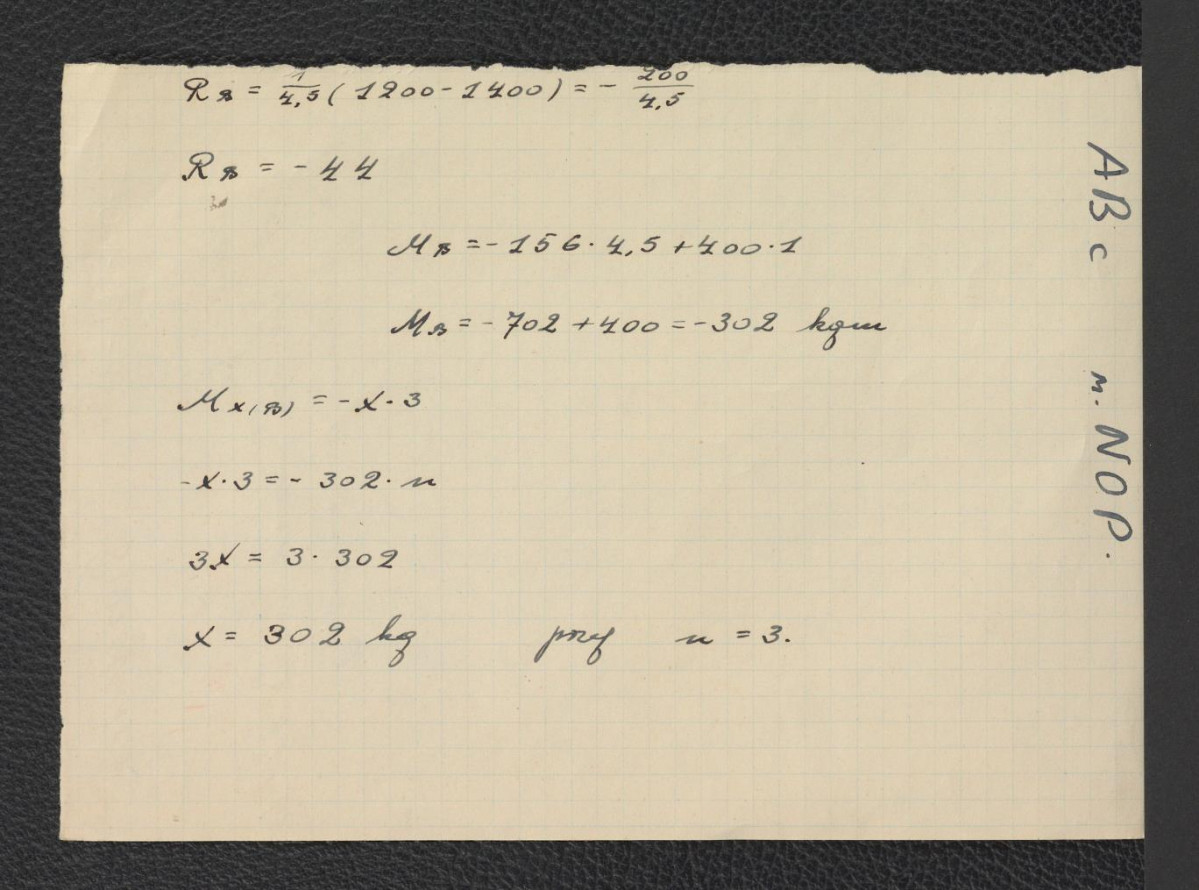 R_B = 1/4,5 ( 1200 - 1400 ) = - 200/4,5
R_B = - 44
M_B = - 156 · 4,5 + 400 · 1
M_B = - 702 + 400 = - 302 kgm
M_x(B) = - x · 3
- x · 3 = - 302 · n
3x = 3 · 302
x = 302 kg przy n = 3.
ABC
m. NOP.